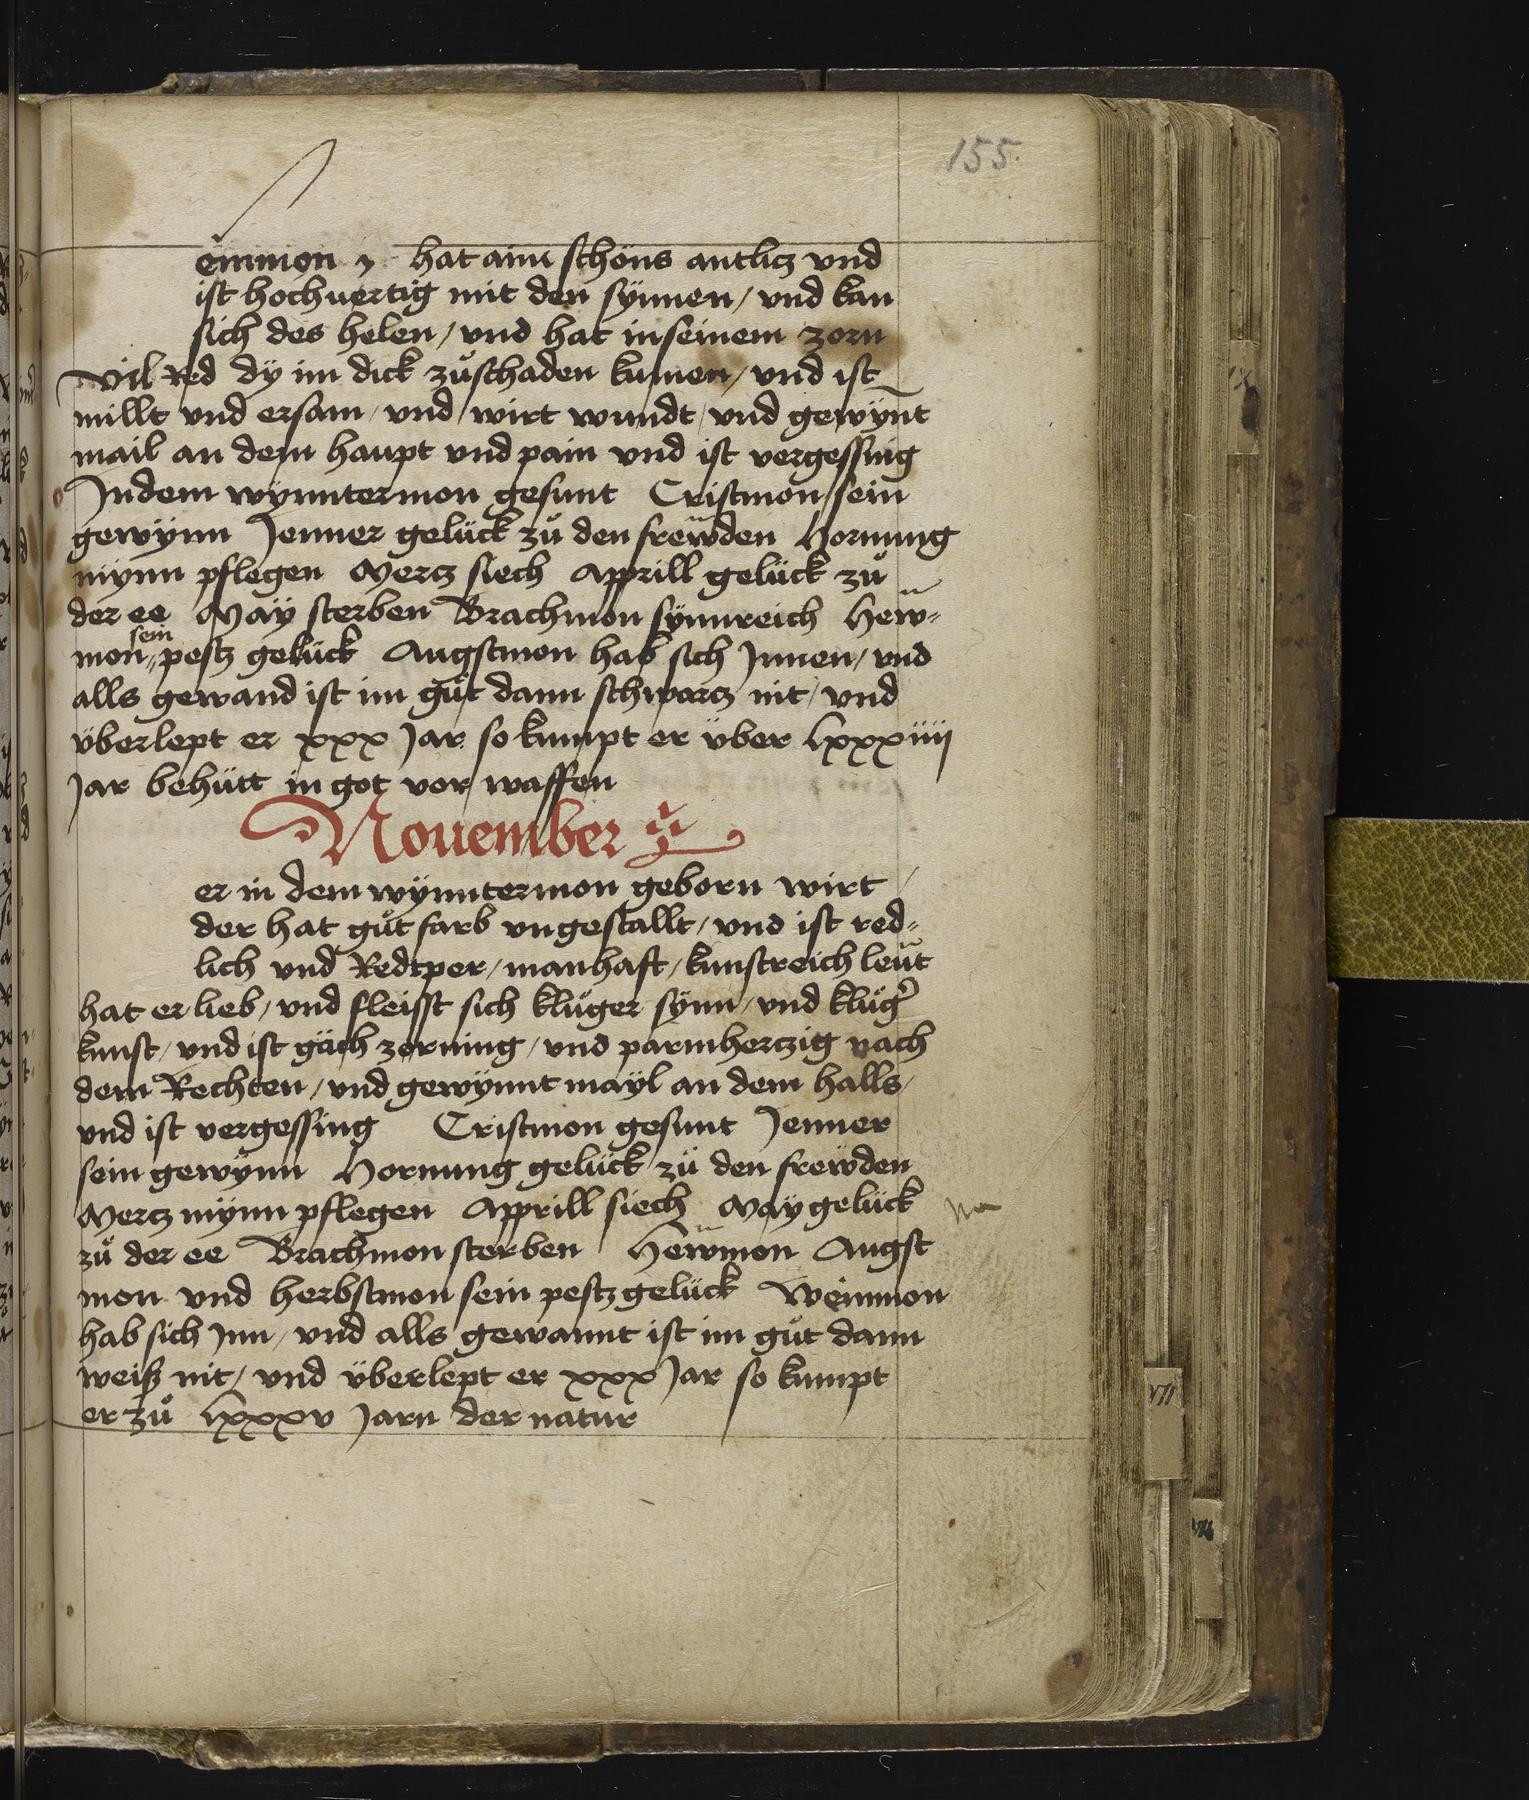 155.
einmon hat aim schöns antlicz vnd
ist hochuertig mit den sÿnnen / vnd kan
sich des helen / vnd hat in seinem zorn
Vil Red dÿ im dick zůschaden kumen / vnd ist
millt vnd ersam / vnd wirt wundt / vnd gewÿnt
mail an dem haupt vnd pain vnd ist vergessing
Jn dem wÿnntermon gesunt Cristmon sein
gewÿnn Jenner gelück zů den frewden Hornung
mÿnn pflegen Mercz siech Apprill gelück zů
der ee Maÿ sterben Brachmon sÿnnreich Hew-
mon sein pestz gelück Augstmon hab sich Jnnen / vnd
alls gewand ist im gůt dann schwarcz nit / vnd
überlept er xxx Jar so kumpt er über lxxxiiij
Jar behütt in got vor waffen
Nouember
er in dem wÿnntermon geborn wirt
der hat gůt farb vngestallt / vnd ist red-
lich vnd Redtper / manhaft / kunstreich leut
hat er lieb / vnd fleisst sich klůger sÿnn / vnd klůg̉
kunst / vnd ist gäch zorning / vnd parmherczig nach
dem Rechten / vnd gewÿnnt maÿl an dem halls /
vnd ist vergessing Cristmon gesunt Jenner
sein gewÿnn Hornung gelück zů den frewden
Mercz mÿnn pflegen Apprill siech Maÿ gelück
zů der ee Brachmon sterben Hewmon Augst
mon vnd herbstmon sein pestz gelück Weinmon
hab sich Jnn / vnd alls gewannt ist im gůt dann
weiß nit / vnd überlept er xxx Jar so kumpt
er zů lxxxv Jarn der natur